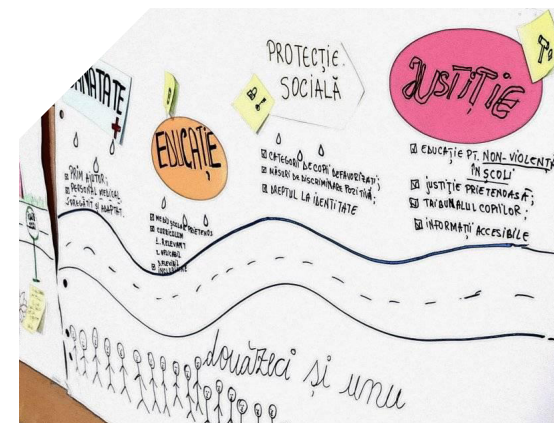 SĂNĂTATE
PRIM AJUTOR;
PERSONAL MEDICAL
PREGĂTIT ȘI ADAPTAT.
EDUCAȚIE
MEDIU ȘCOLAR PRIETENOS
CURRICULUM
1. RELEVANT
2. APLICABIL
3. FLEXIBIL
PROTECȚIE
SOCIALĂ
CATEGORII DE COPII DEFAVORIZAȚI;
MĂSURI DE DISCRIMINARE POZITIVĂ;
DREPTUL LA IDENTITATE
JUSTIȚIE
EDUCAȚIE PT. NON-VIOLENȚĂ
ÎN ȘCOLI
JUSTIȚIE PRIETENOASĂ;
TRIBUNALUL COPIILOR;
INFORMAȚII ACCESIBILE
douăzeci și unu